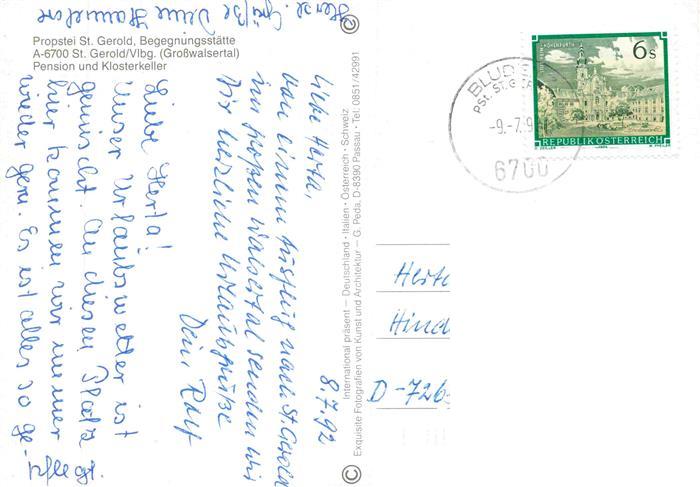 Propstei St. Gerold, Begegnungsstätte
A-6700 St. Gerold/Vlbg. (Großwalsertal)
Pension und Klosterkeller
8.7.92
Liebe Herta,
von einem Ausflug nach St. Gerold
im großen Walsertal senden wir
Dir herzliche Urlaubsgrüße
Dein Ralf
Liebe Herta!
Unser Urlaubswetter ist
gemischt. An diesen Platz
hier kommen wir immer
wieder gern. Es ist alles so ge-
pflegt.
Herzl. Grüße Deine Hannelore
International präsent – Deutschland · Italien · Österreich · Schweiz
© Exquisite Fotografien von Kunst und Architektur – G. Peda, D-8390 Passau · Tel. 0851/42991 ©
6 S
REPUBLIK ÖSTERREICH
BLUDE
PST. ST.GE
-9.-7.9
6700
Hert
Hind
D-726